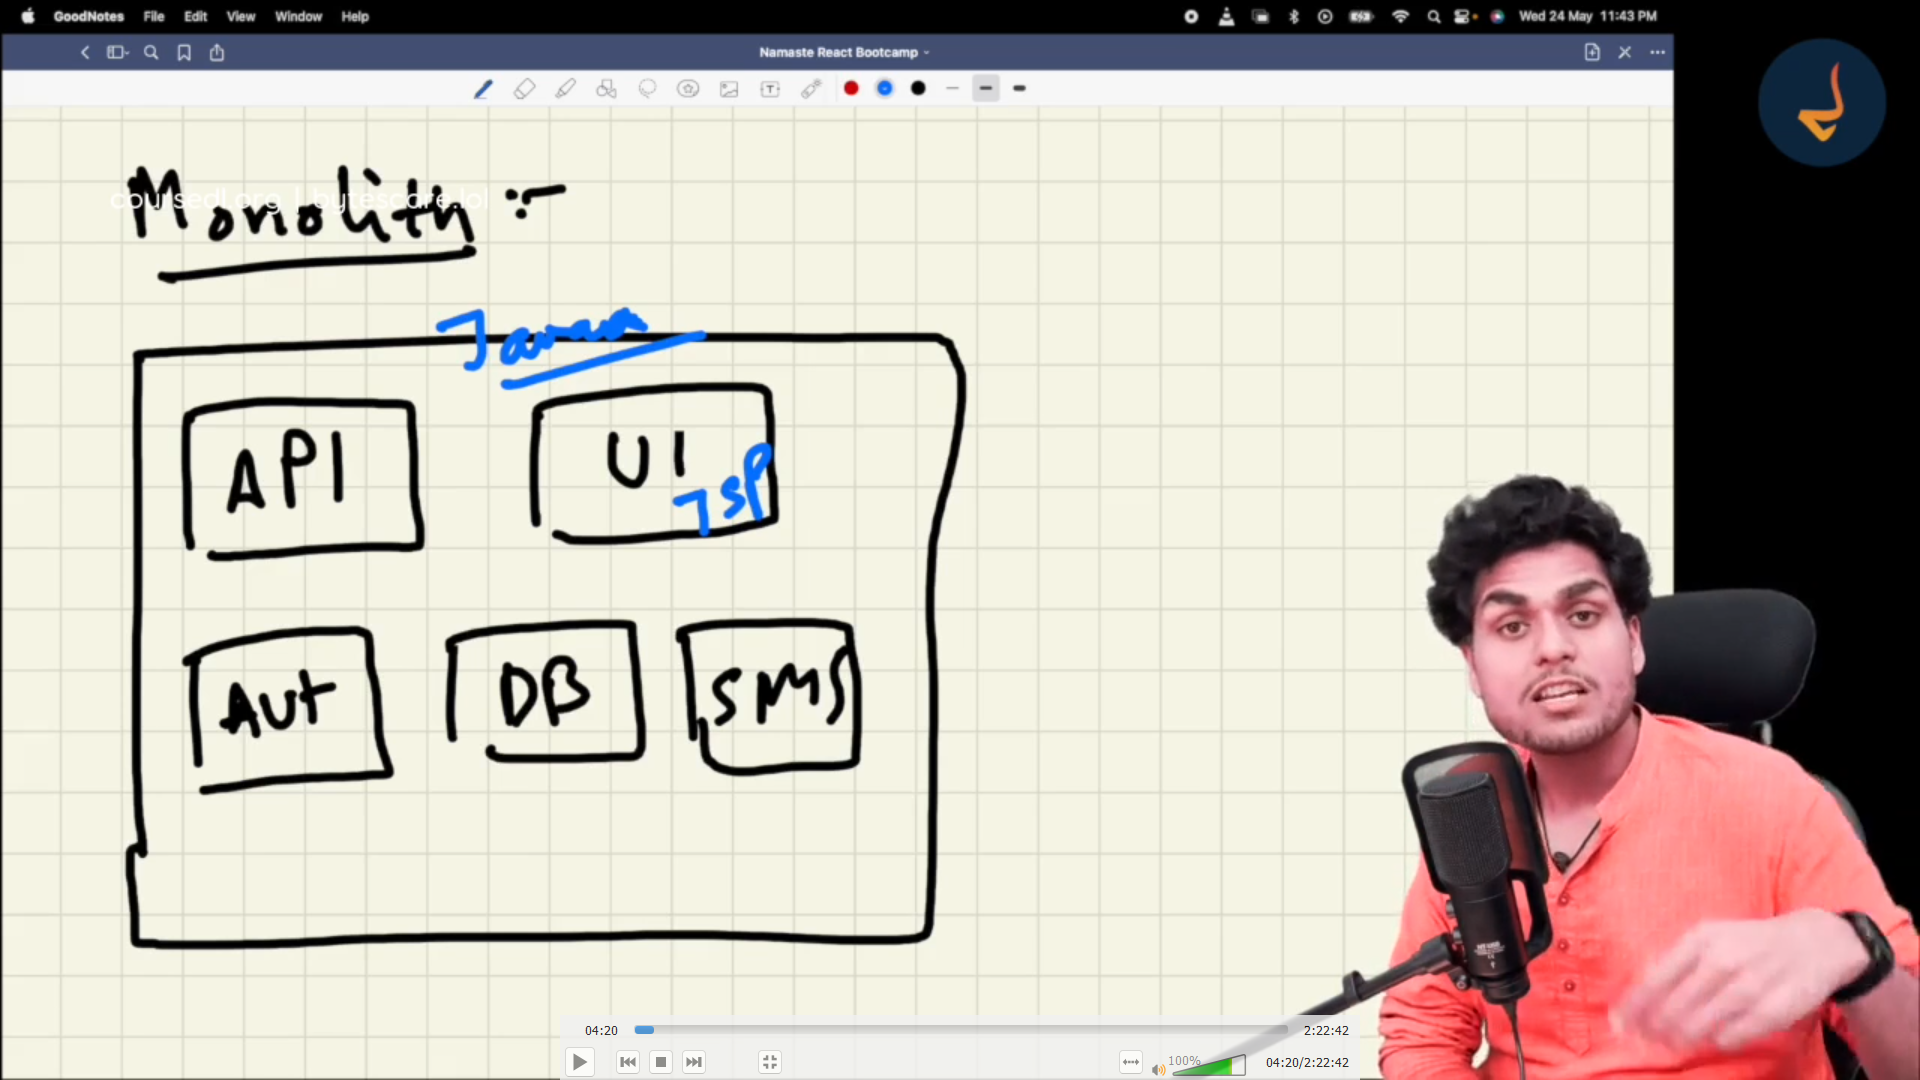 GoodNotes File Edit View Window Help Wed 24 May 11:43 PM
Namaste React Bootcamp
T
coursedl.org | bytescare.lol
Monolith :-
Java
API
UI
JSP
Aut
DB
SMS
04:20 2:22:42
100% 04:20/2:22:42